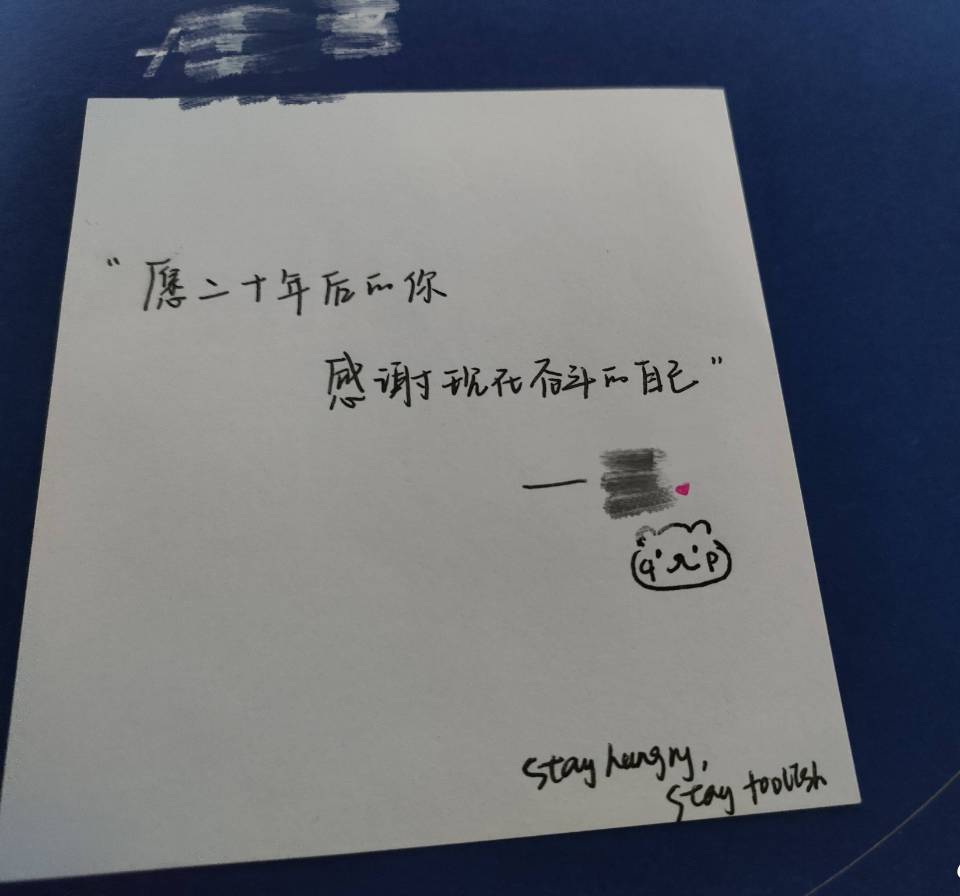 “愿二十年后的你
感谢现在奋斗的自己”
——
stay hungry,
stay foolish